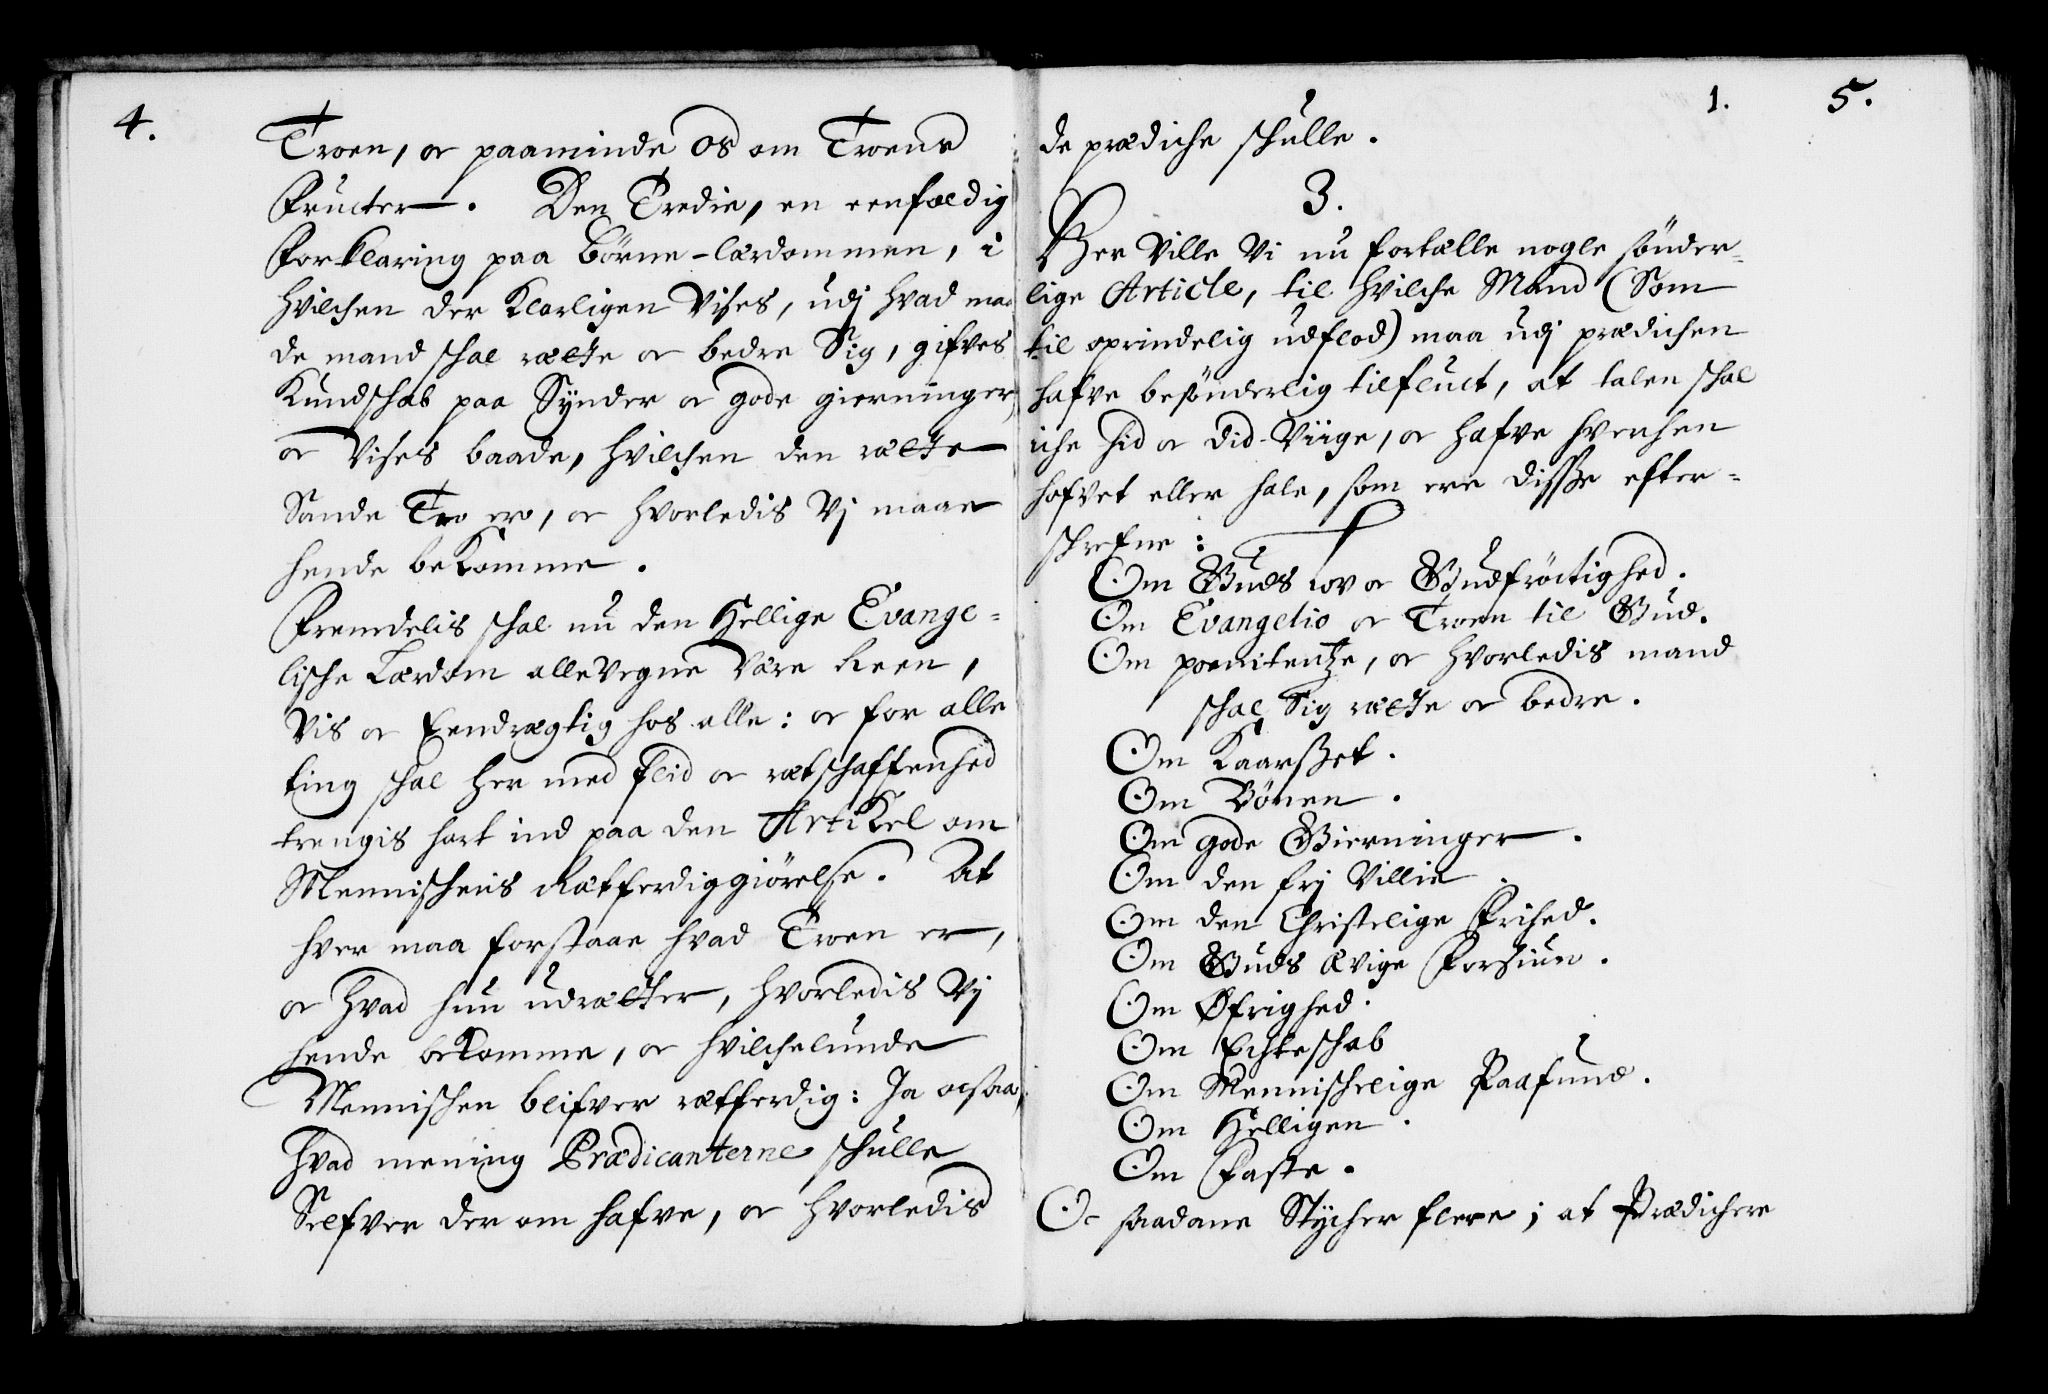 4.
Troen, oc paaminde os om Troens
Fructer. Den Tredie, en eenfoldig
Forklaring paa Börne-lærdommen, i
hvilchen der Klarligen Vises, udj hvad maa
de mand schal rætte oc bedre Sig, gifves
Kundschab paa Synder oc gode gierninger,
oc Vises baade, hvilchen den rætte
Sande Tro ero, oc hvorledis Vj maae
hende beKomme.
Fremdelis schal nu den Hellige Evange=
lische Lærdom alleVegne Være Reen,
Vis oc Eendrægtig hos alle: oc for alle
ting schal her med flid oc rætschaffenhed
trengis hart ind paa den ArtiKel om
Mennischens Rætferdiggiörelse. At
hver maa forstaae hvad Troen er,
oc hvad hun udrætter, hvorledis Vj
hende beKomme, oc hvilchelunde
Mennischen blifver rætferdig: Ja ocsaa,
hvad mening Prædicanterne schulle
Selfver der om hafve, oc hvorledis
1. 5.
de prædiche schulle.
3.
Her Ville Vi nu fortælle nogle sönder=
lige Article, til hvilche Mand (Som
til oprindelig udflod) maa udj prædichen
hafve besönderlig tilfluct, at talen schal
iche hid oc did Viige, oc hafve hverchen
hofvet eller hale, som ere disße efter=
schrefne:
Om Guds lov oc Gudfröctighed.
Om Evangelio oc Troen til Gud.
Om poenitentze, oc hvorledis mand
schal Sig rætte oc bedre.
Om Kaarßet.
Om Bönen.
Om gode Gierninger.
Om den frj Villie.
Om den Christelige Frihed.
Om Guds Ævige Forsiun.
Om Øfrighed.
Om Echteschab
Om Mennischelige Paafund.
Om Helligen.
Om Faste.
Oc saadane Stycher flere; at Prædichere